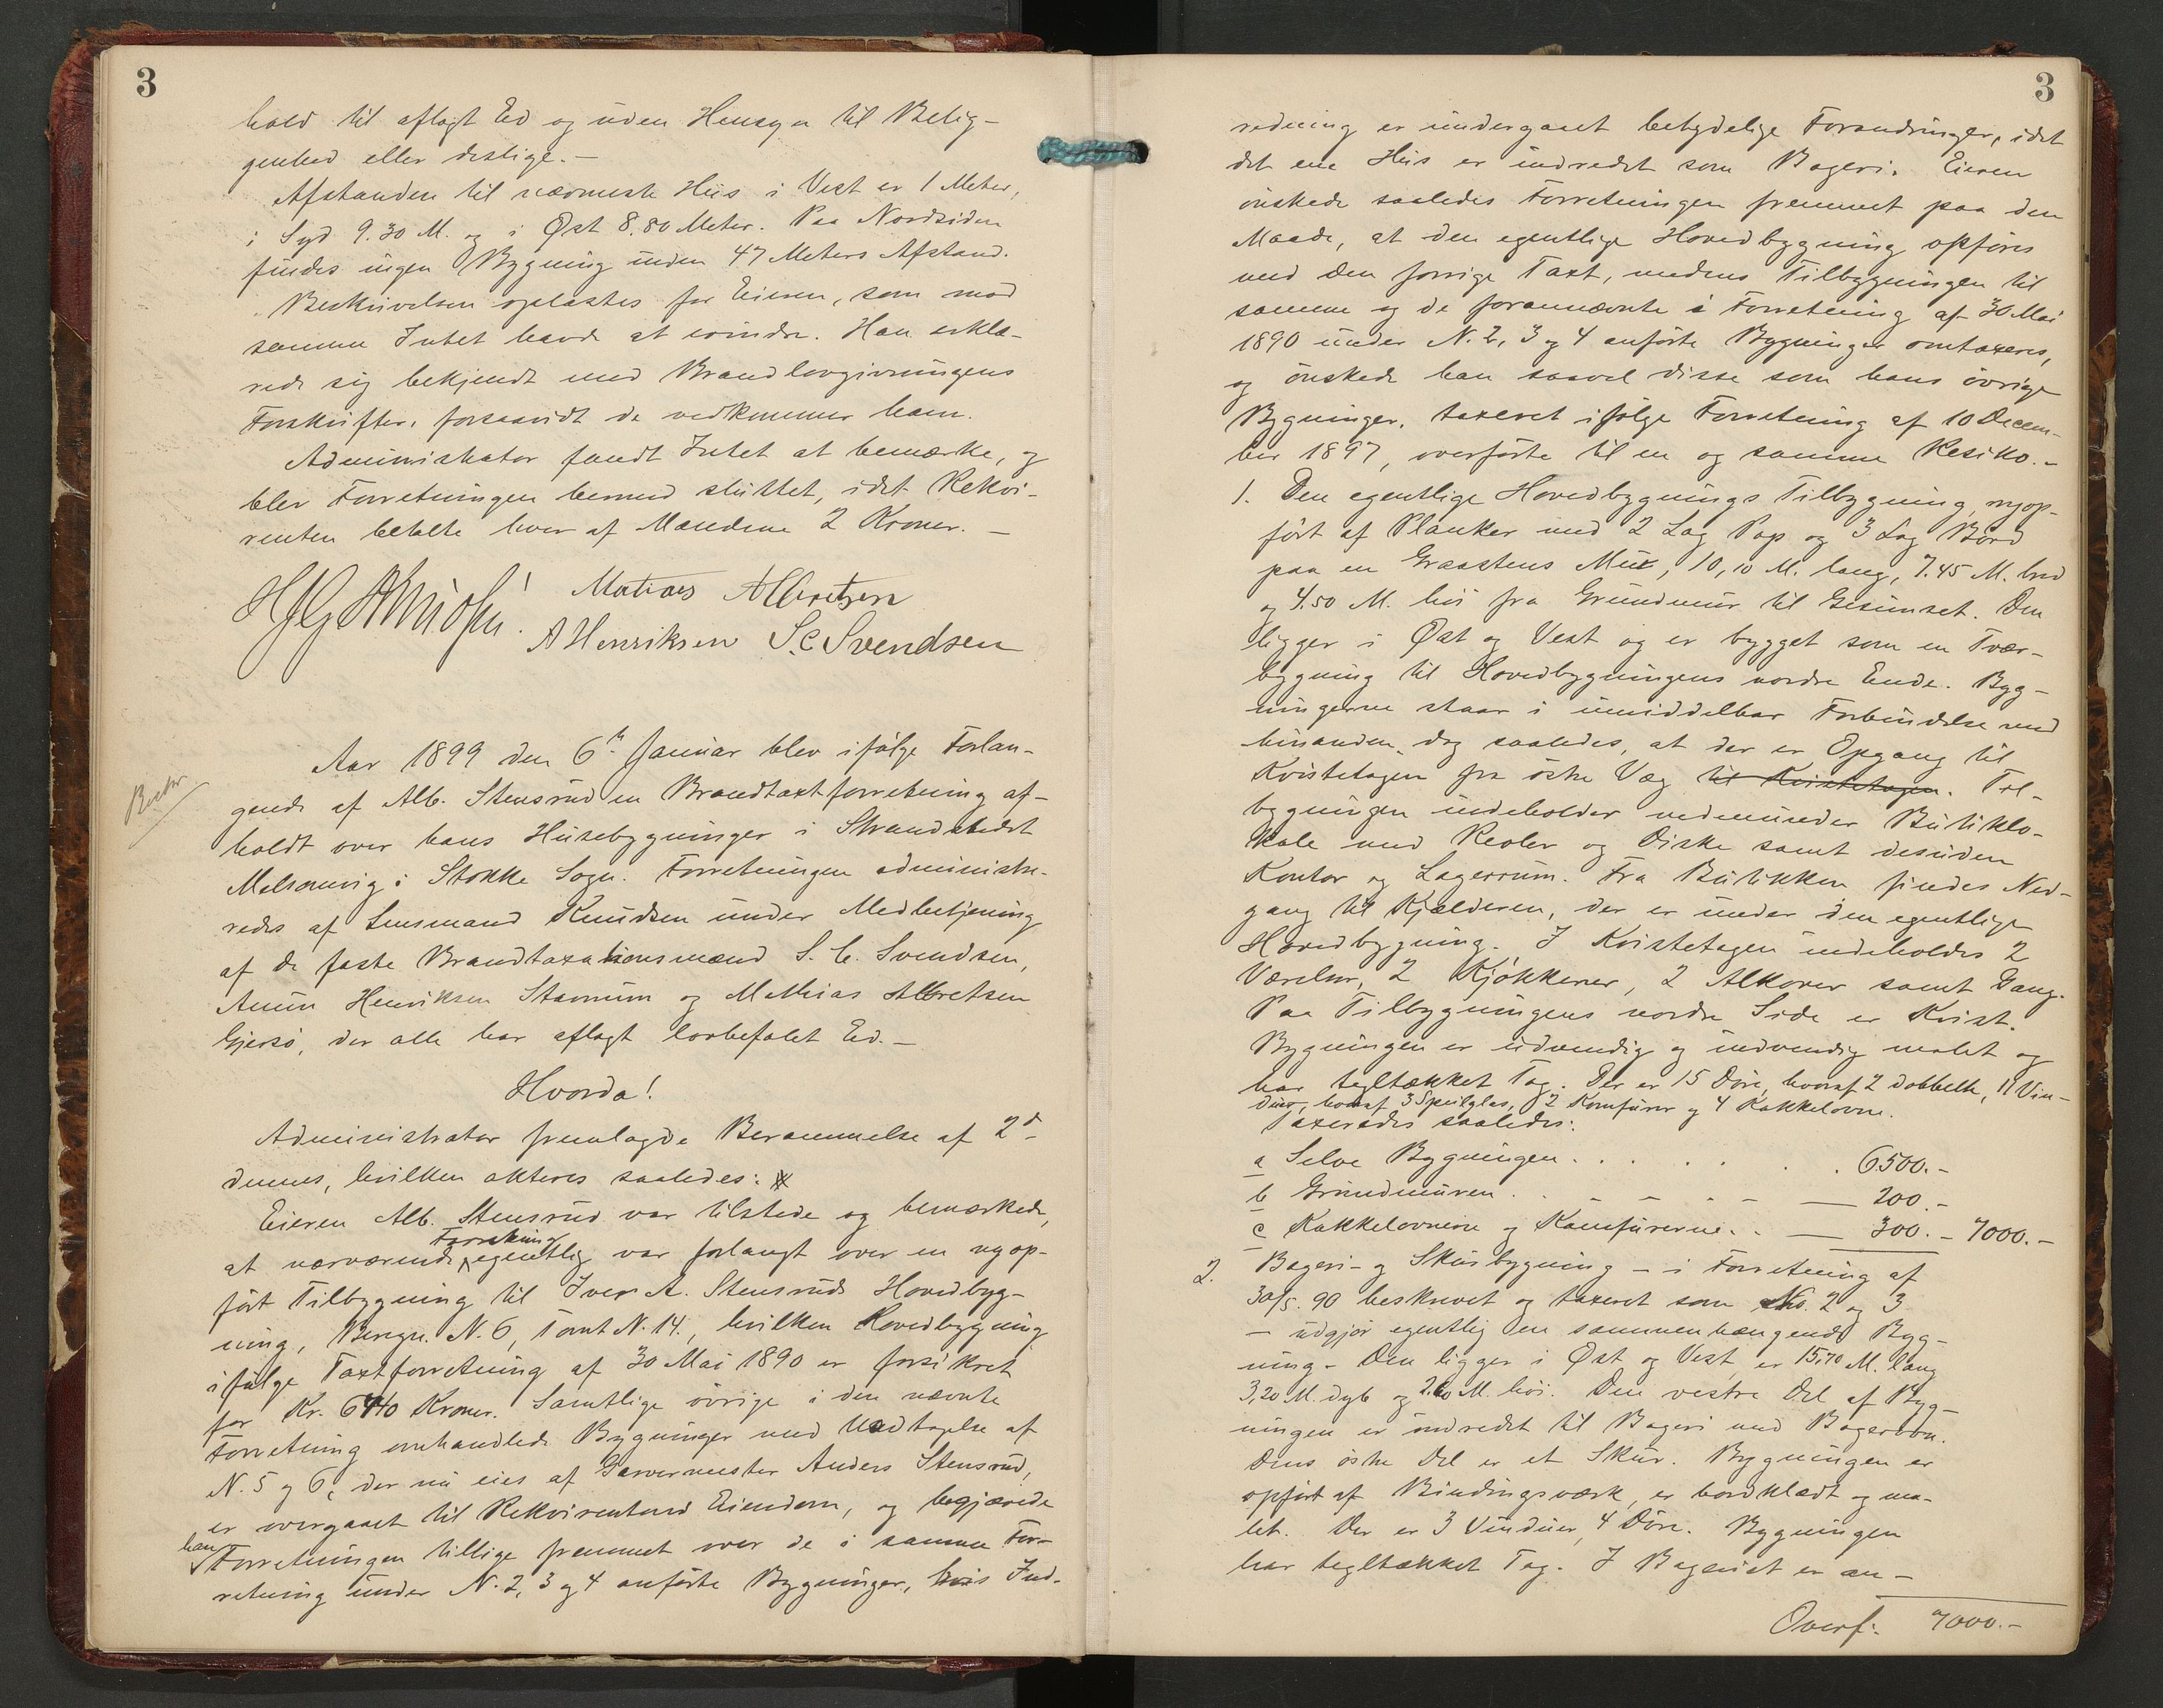 3
hold til aflagt Ed og uden Hensyn til Belig-
genhed eller deslige.-
Afstanden til nærmeste Hus i Vest er 1 Meter,
i Syd 9.30 M. og i Øst 8.80 Meter. Paa Nordsiden
findes ingen Bygning inden 47 Meters Afstand.
Beskrivelsen oplæstes for Eieren, som mod
samme Intet havde at erindre. Han erklæ-
rede sig bekjendt med Brandlovgivningens
Forskrifter, forsaavidt de vedkommer ham.
Administrator fandt Intet at bemærke, og
blev Forretningen hermed sluttet, idet Rekvi-
renten betalte hver af Mændene 2 Kroner.-
Matias Albretsen
A Henriksen S.C Svendsen
Aar 1899 den 6te Januar blev ifølge Forlan-
gende af Alb. Stensrud en Brandtaxtforretning af-
holdt over hans Husebygninger i Strandstedet
Melsomvig i Stokke Sogn. Forretningen administre-
redes af Lensmand Knudsen under Medbetjening
af de faste Brandtaxationsmænd S. C. Svendsen,
Anun Henriksen Stavnum og Mathias Albretsen
Gjersø, der alle har aflagt lovbefalet Ed.-
Hvorda!
Administrator fremlagde Berammelse af 2d
dennes, hvilken akteres saaledes: #
Eieren Alb. Stensrud var tilstede og bemærkede,
Forretning
at nærværende egentlig var forlangt over en nyop-
ført Tilbygning til Iver A. Stensruds Hovedbyg-
ning, Beregn. N. 6, Tomt N. 14., hvilken Hovedbygning
ifølge Taxtforretning af 30 Mai 1890 er forsikret
for Kr. 6440 Kroner. Samtlige øvrige i den nævnte
Forretning omhandlede Bygninger med Undtagelse af
N. 5 og 6, der nu eies af Garvermester Anders Stensrud,
er overgaaet til Rekvirentens Eiendom, og begjærede
han
Forretningen tillige fremmet over de i samme For-
retning under N. 2, 3 og 4 anførte Bygninger, hvis Ind-
3
redning er undergaaet betydelige Forandringer, idet
det ene Hus er indredet som Bageri. Eieren
ønskede saaledes Forretningen fremmet paa den
Maade, at den egentlige Hovedbygning opføres
med den forrige Taxt, medens Tilbygningen til
samme og de forannævnte i Forretning af 30 Mai
1890 under N. 2, 3 og 4 anførte Bygninger omtaxeres,
og ønskede han saavel disse som hans øvrige
Bygninger, taxeret ifølge Forretning af 10 Decem-
ber 1897, overførte til en og samme Resiko.-
1. Den egentlige Hovedbygnings Tilbygning, nyop-
ført af Planker med 2 Lag Pap og 3 Lag Bord
paa en Graastens Mur, 10,10 M. lang, 7.45 M. bred
og 4.50 M. høi fra Grundmur til Gesimset. Den
ligger i Øst og Vest og er bygget som en Tvær-
bygning til Hovedbygningens nordre Ende. Byg-
ningerne staar i umiddelbar Forbindelse med
hinanden, dog saaledes, at der er Opgang til
Kvistetagen fra østre Væg til Kvistetagen. Til-
bygningen indeholder nedenunder Butiklo-
kale med Reoler og Diske samt desuden
Kontor og Lagerrum. Fra Butikken findes Ned-
gang til Kjælderen, der er under den egentlige
Hovedbygning. I Kvistetagen indeholdes 2
Værelser, 2 Kjøkkener, 2 Alkover samt Gang.
Paa Tilbygningens nordre Side er Kvist.
Bygningen er udvendig og indvendig malet og
har tegltækket Tag. Der er 15 Døre, hvoraf 2 dobbelte, 11 Vin-
duer, hvoraf 3 Speilglas, 2 Komfurer og 4 Kakkelovne.
Taxeredes saaledes:
a Selve Bygningen . . . . . . 6500.-
b Grundmuren . . - - - - — 200.-
c Kakkelovnene og Komfurerne. . — 300.- 7000.-
2. Bageri- og Skurbygning - i Forretning af
30/5. 90 beskrevet og taxeret som No. 2 og 3
- udgjør egentlig en sammenhængende Byg-
ning. Den ligger i Øst og Vest, er 15.70 M. lang
3,20 M. dyb og 2.60 M. høi. Den vestre Del af Byg-
ningen er indredet til Bageri med Bagerovn.
Dens østre Del er et Skur. Bygningen er
opført af Bindingsværk, er bordklædt og ma-
let. Der er 3 Vinduer, 4 Døre. Bygningen
har tegltækket Tag. I Bageriet er an-
Overf. 7000.-